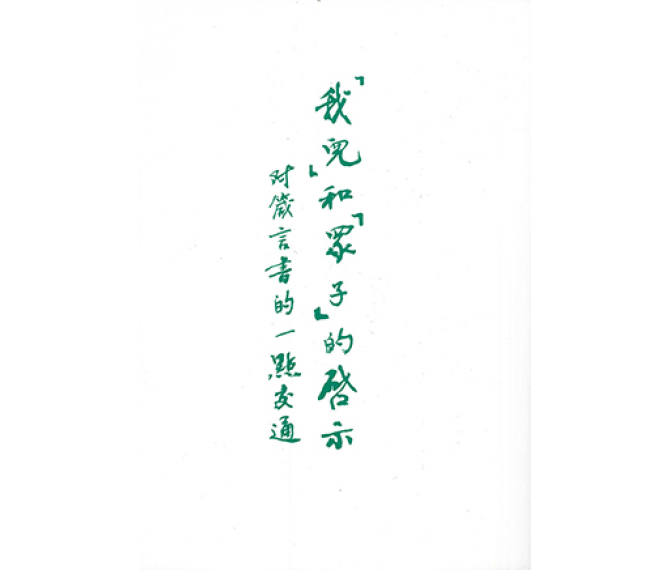 「我兒」和「眾子」的啓示
对箴言書的一點交通